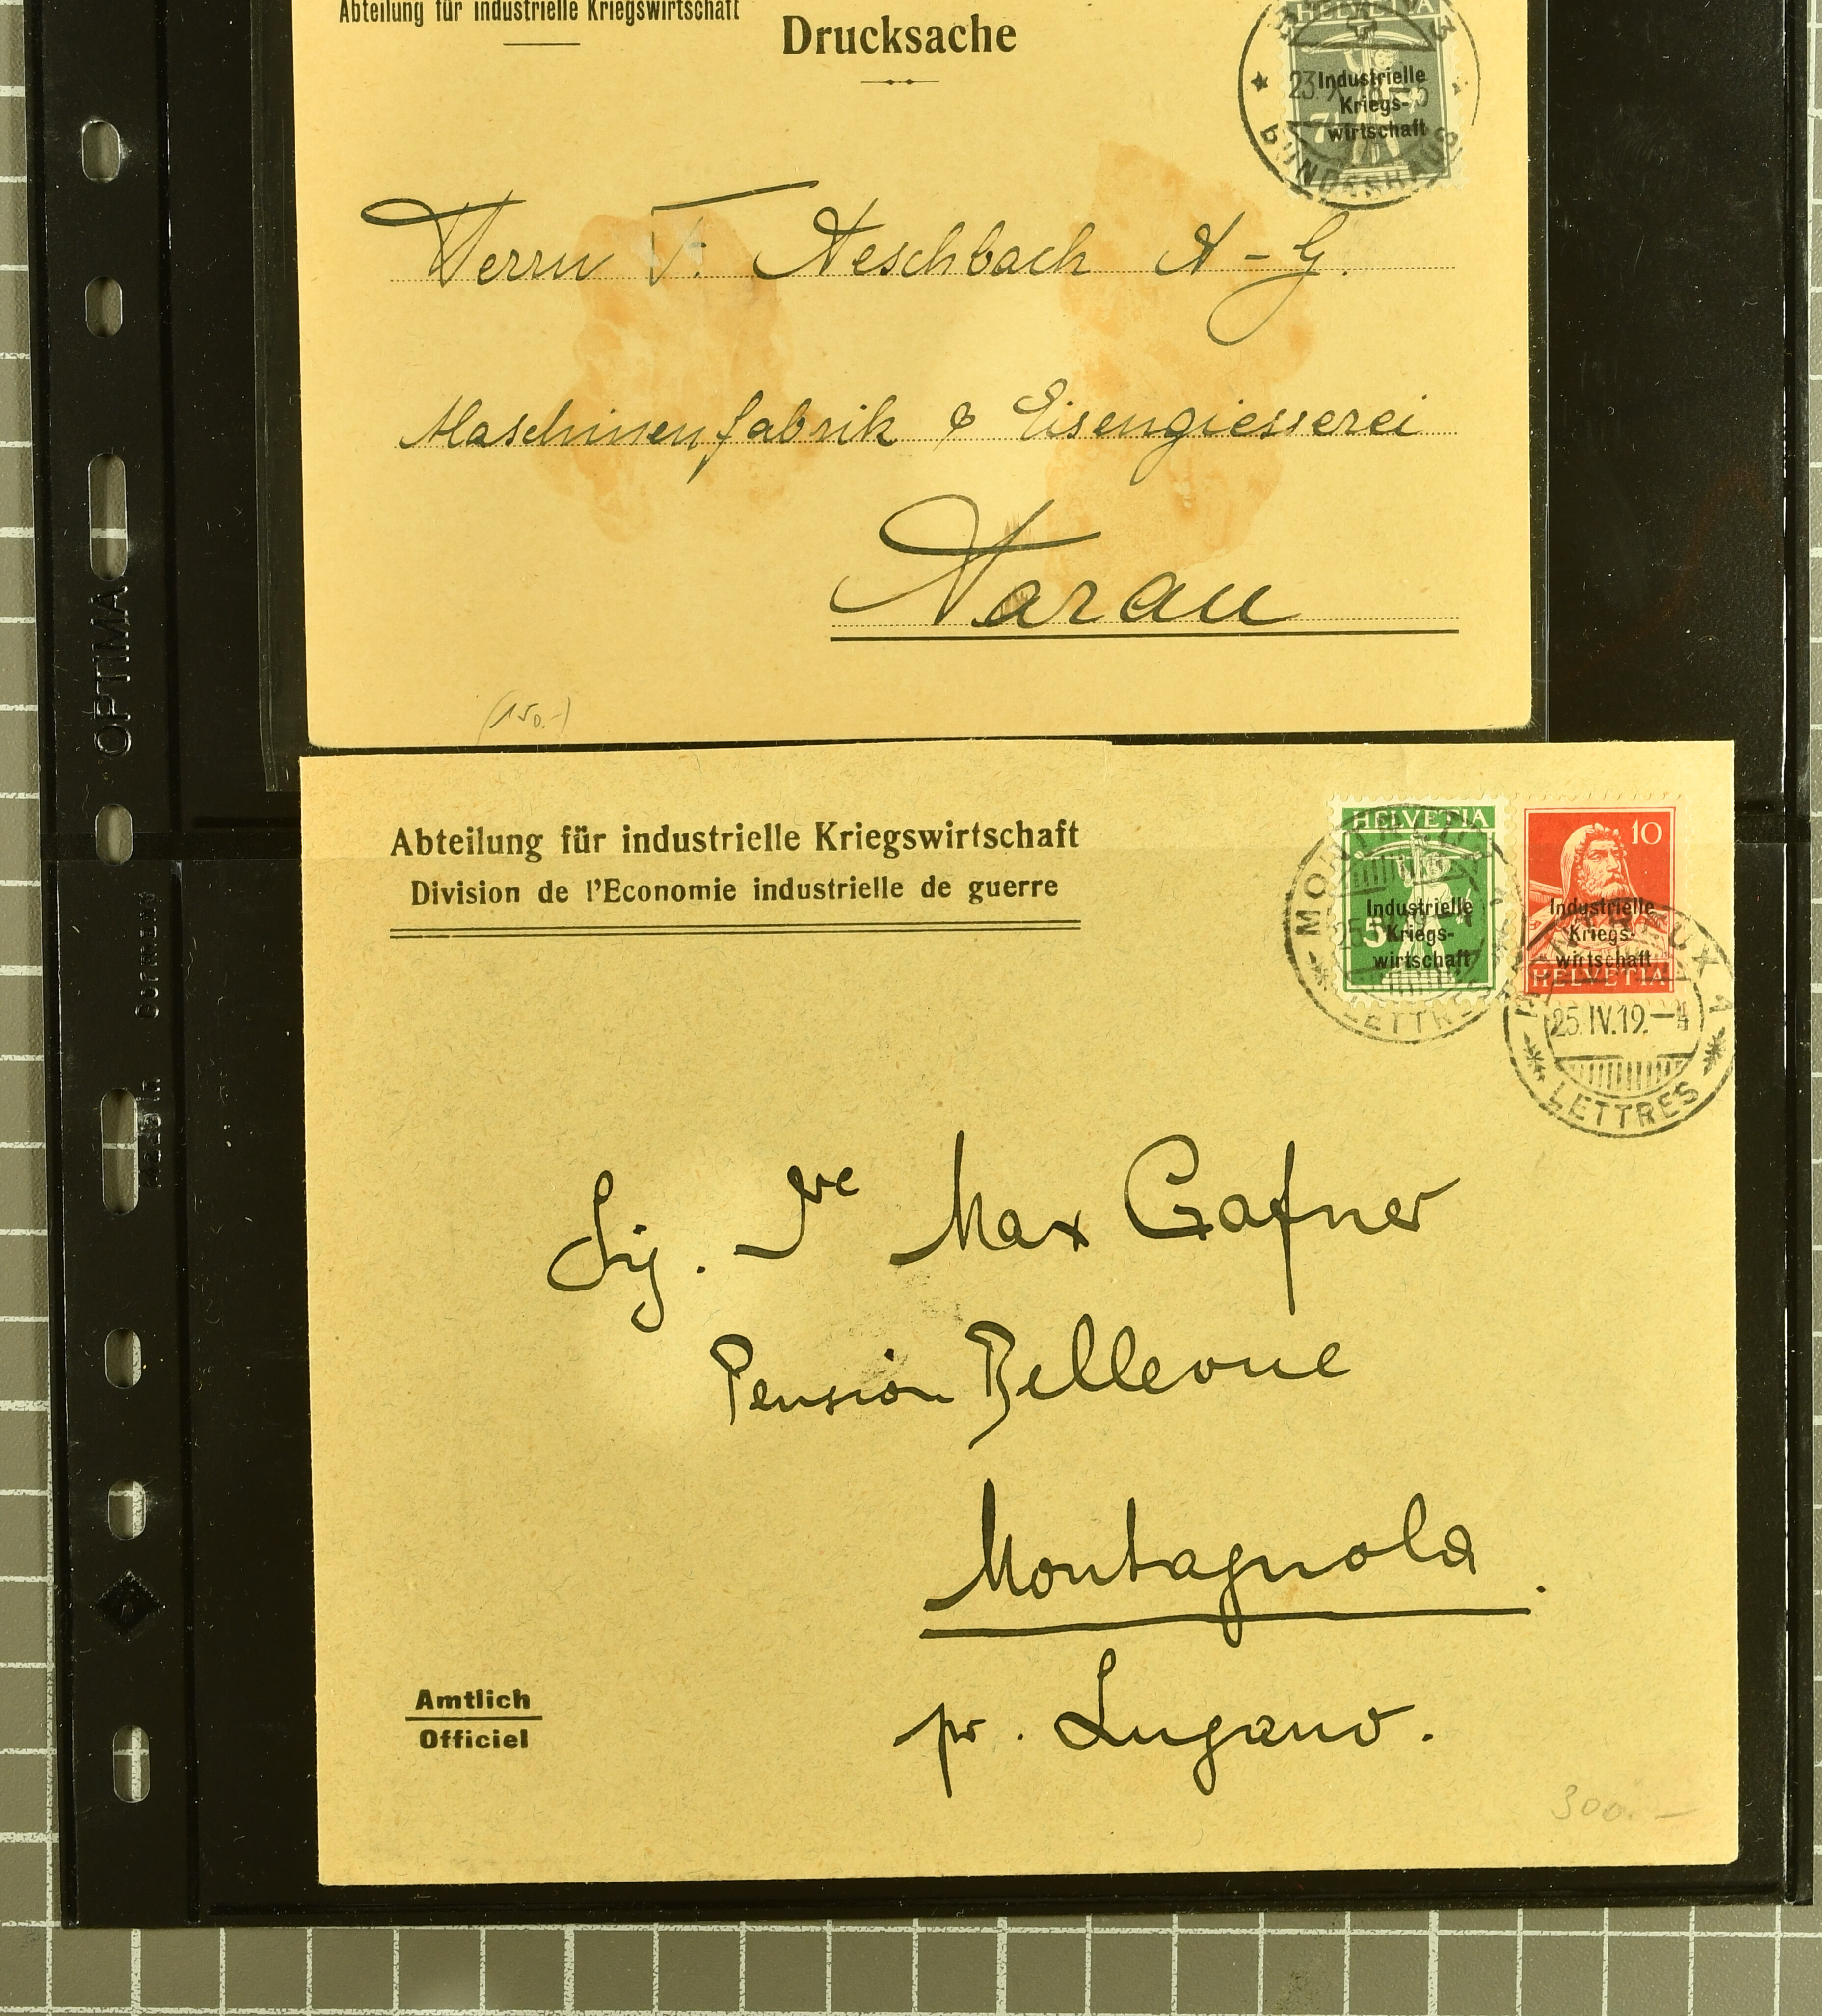 Abteilung für industrielle Kriegswirtschaft
Drucksache
HELVETIA
Industrielle
Kriegs-
wirtschaft
7½
23.
BUNDESHAUS
Herrn F. Aeschbach A-G.
Maschinenfabrik & Eisengiesserei
Aarau
(150.-)
OPTIMA
Made in Germany
Abteilung für industrielle Kriegswirtschaft
Division de l'Economie industrielle de guerre
HELVETIA
5
Industrielle
Kriegs-
wirtschaft
10
Industrielle
Kriegs-
wirtschaft
HELVETIA
MONTREUX
LETTRES
MONTREUX 1
25.IV.19.-4
LETTRES
Max Gafner
Pension Bellevue
Montagnola.
pr. Lugano.
Amtlich
Officiel
300.-